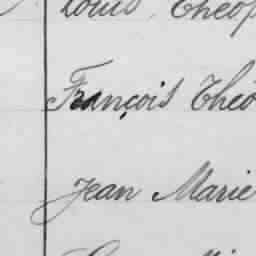 Louis Théop
François Théo
Jean Marie